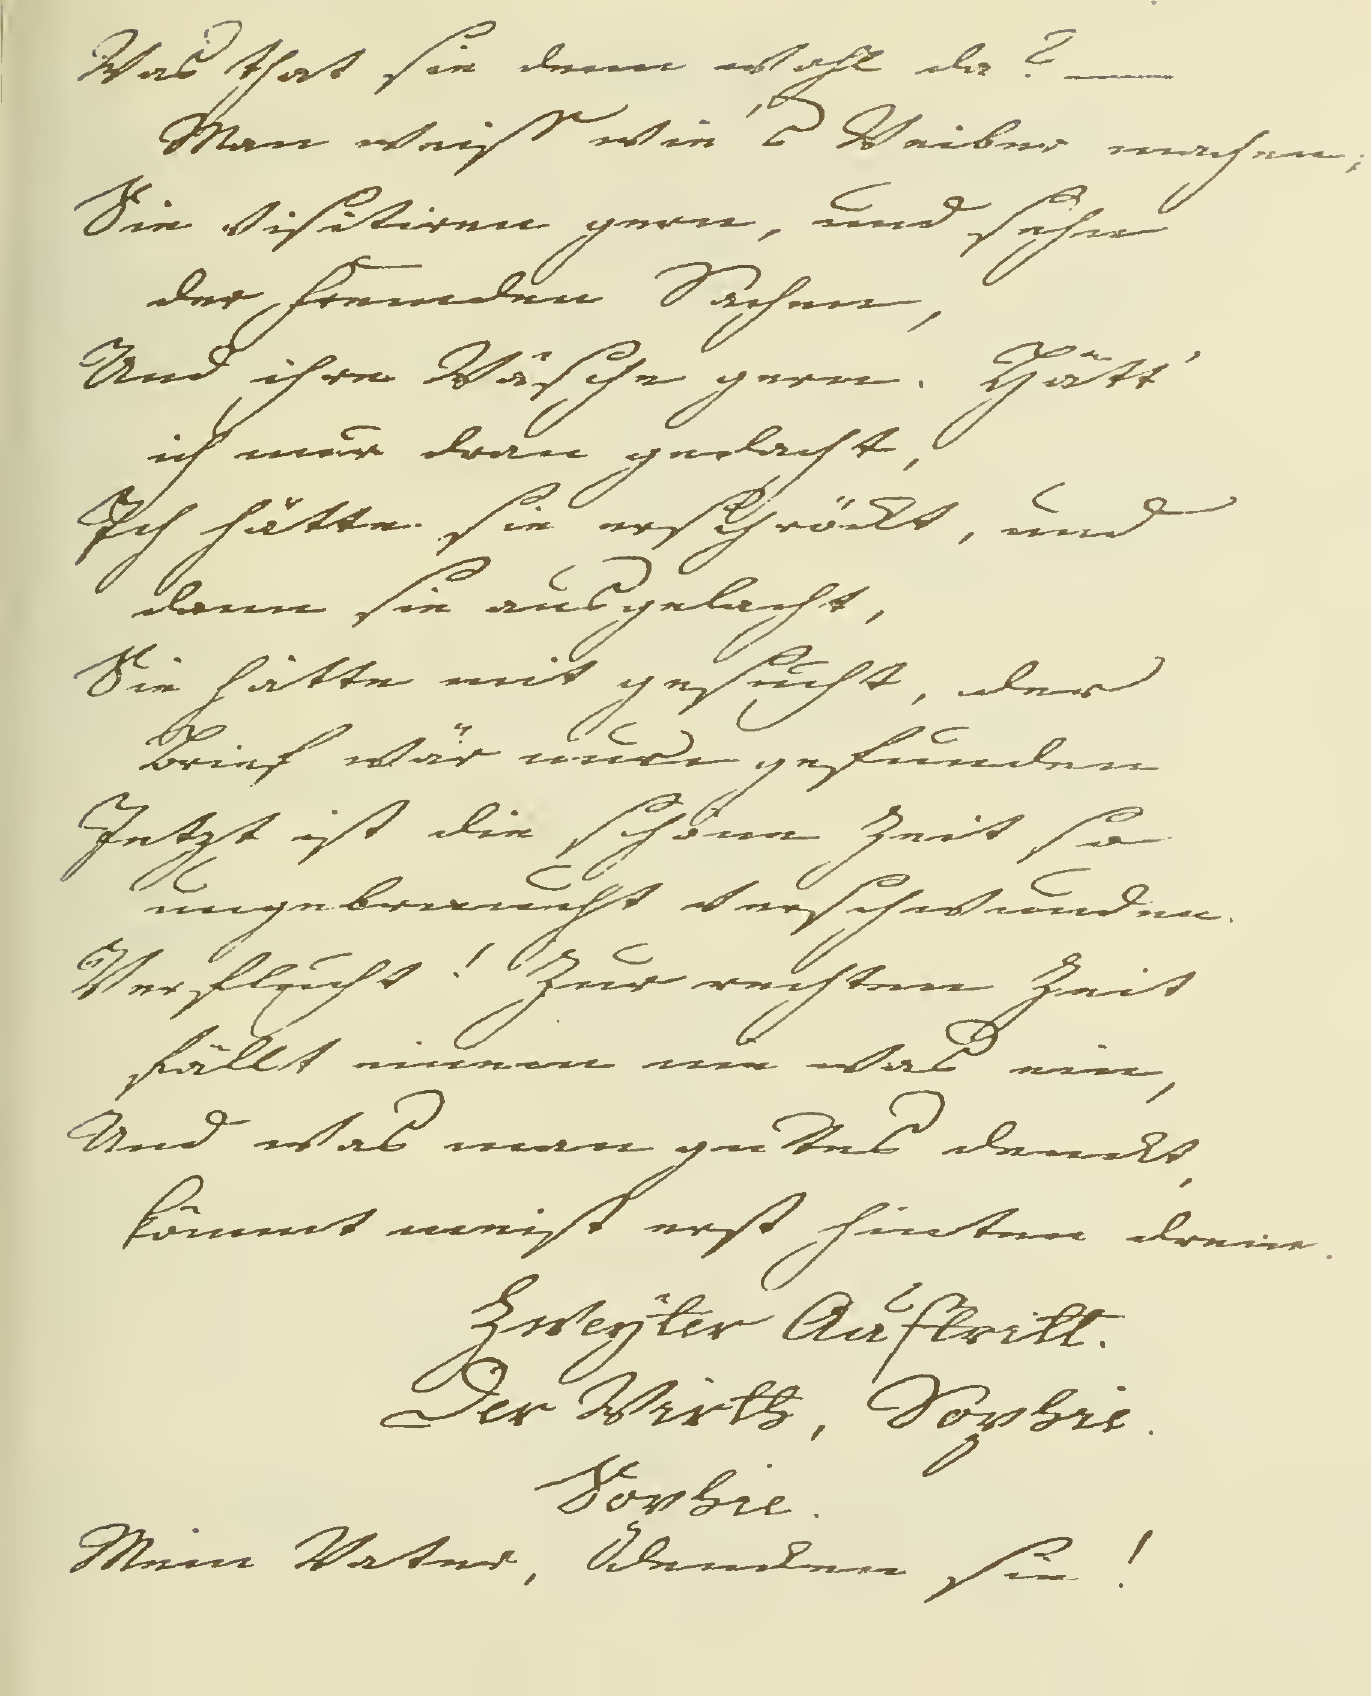 Was that sie denn wohl da? —
Man weiss wie's Weiber machen;
Sie visitiren gern, und sehn
der fremden Sachen,
Und ihre Wäsche gern. Hätt'
ich nur dran gedacht,
Ich hätte sie erschröckt, und
dann sie ausgelacht,
Sie hätte mit gesucht, der
Brief wär nun gefunden
Jetzt ist die schöne Zeit so
ungebraucht verschwunden.
Verflucht! Zur rechten Zeit
fällt einem nie was ein,
Und was man gutes denckt,
kömmt meist erst hinten drein.
Zweyter Auftritt.
Der Wirth, Sophie.
Sophie.
Mein Vater, dencken sie!